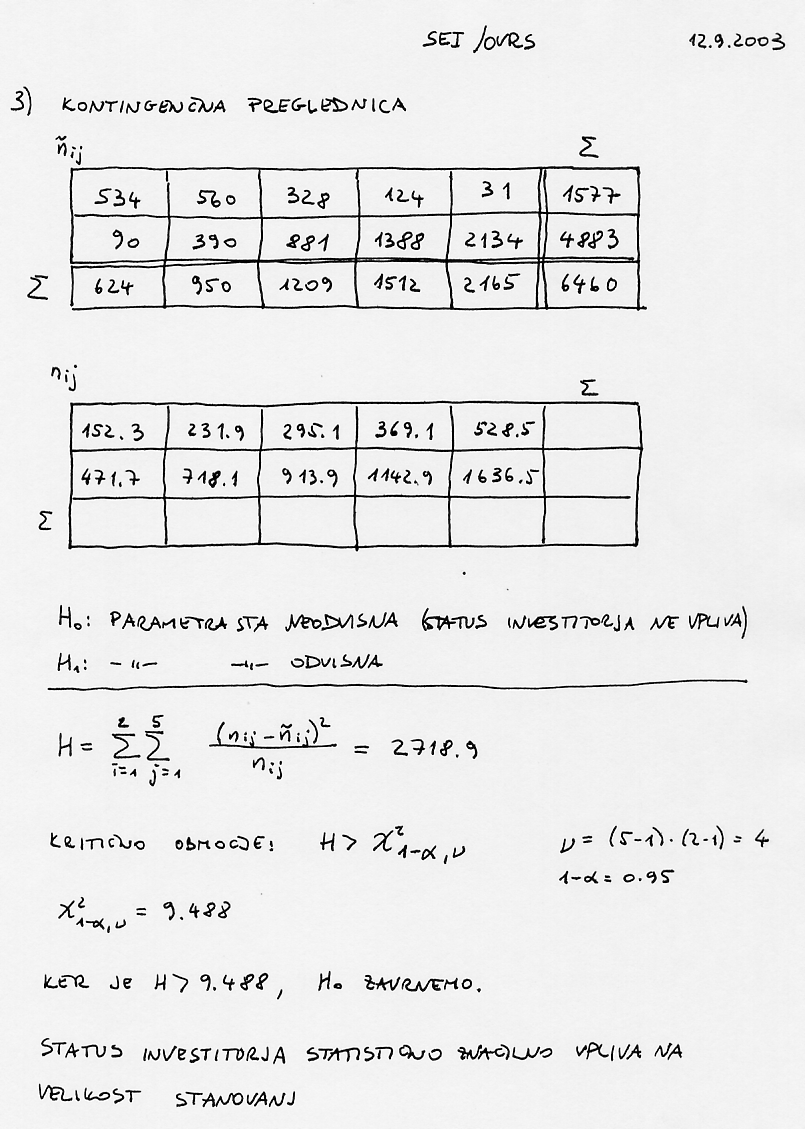 SEI /OVRS 12.9.2003
3) KONTINGENČNA PREGLEDNICA
ñij Σ
534 560 328 124 31 1577
90 390 881 1388 2134 4883
Σ 624 950 1209 1512 2165 6460
nij Σ
152.3 231.9 295.1 369.1 528.5
471.7 718.1 913.9 1142.9 1636.5
Σ
H₀: PARAMETRA STA NEODVISNA (STATUS INVESTITORJA NE VPLIVA)
H₁: -〃- -〃- ODVISNA
H = Σ_{i=1}^{2} Σ_{j=1}^{5} (nij - ñij)² / nij = 2718.9
KRITIČNO OBMOČJE: H > χ²_{1-α,ν} ν = (5-1)·(2-1) = 4
1-α = 0.95
χ²_{1-α,ν} = 9.488
KER JE H > 9.488, H₀ ZAVRNEMO.
STATUS INVESTITORJA STATISTIČNO ZNAČILNO VPLIVA NA
VELIKOST STANOVANJ